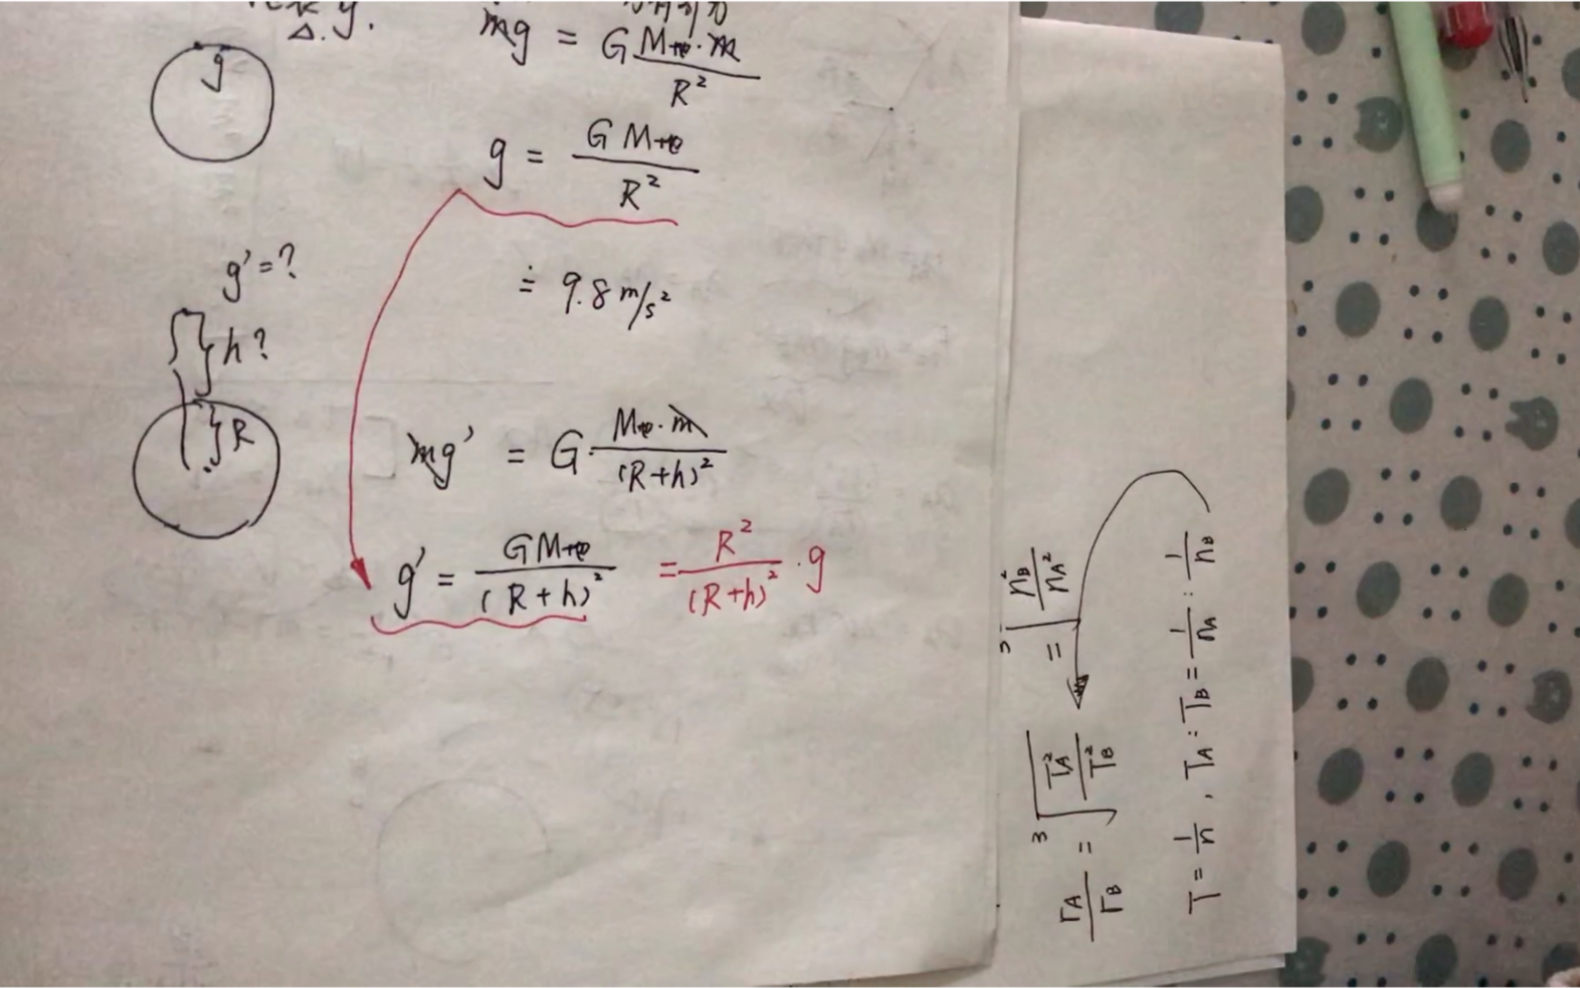 g
mg = G M地·m / R²
g = GM地 / R²
≐ 9.8 m/s²
g' = ?
h?
R
mg' = G· M地·m / (R+h)²
g' = GM地 / (R+h)² = R² / (R+h)² · g
rA / rB = ³√(TA² / TB²) = ³√(nB² / nA²)
T = 1/n , TA : TB = 1/nA : 1/nB